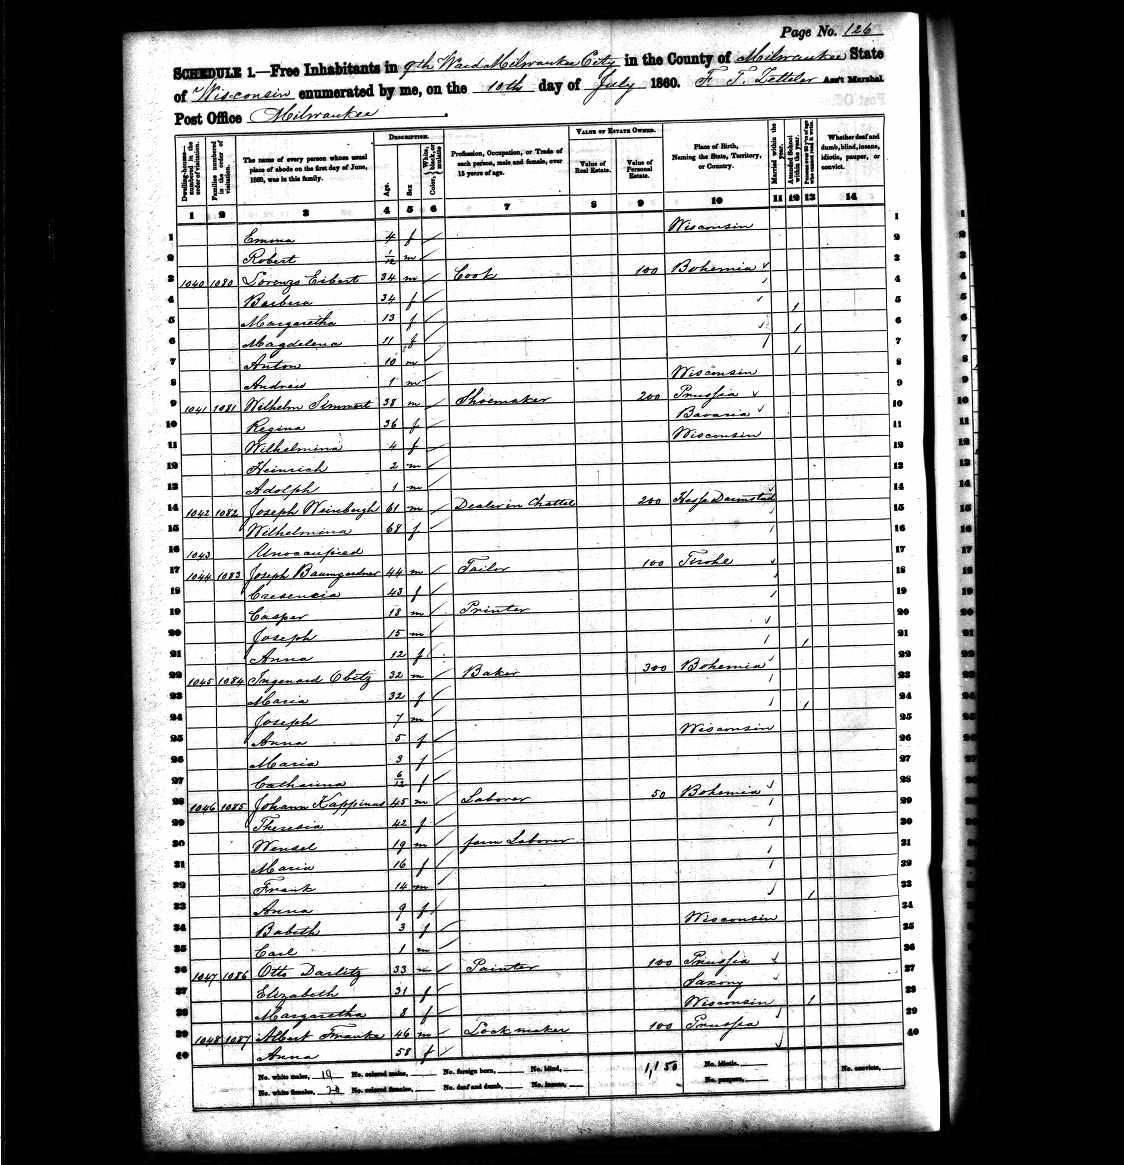 Page No. 126
SCHEDULE 1.—Free Inhabitants in 9th Ward Milwaukee City in the County of Milwaukee State
of Wisconsin enumerated by me, on the 10th day of July 1860. F. T. Zetteler Ass't Marshal.
Post Office Milwaukee
Dwelling-houses numbered in the order of visitation. Families numbered in the order of visitation. The name of every person whose usual place of abode on the first day of June, 1860, was in this family. DESCRIPTION. Age. Sex Color, White, black, or mulatto Profession, Occupation, or Trade of each person, male and female, over 15 years of age. VALUE OF ESTATE OWNED. Value of Real Estate. Value of Personal Estate. Place of Birth, Naming the State, Territory, or Country. Married within the year. Attended School within the year. Whether deaf and dumb, blind, insane, idiotic, pauper, or convict.
1 2 3 4 5 6 7 8 9 10 11 12 13 14
1 Emma 4 f Wisconsin 1
2 Robert 1/12 m 2
3 1040 1080 Lorenzo Eibert 34 m Cook 100 Bohemia 3
4 Barbera 34 f 4
5 Margaretha 13 f 1 5
6 Magdelena 11 f 1 6
7 Anton 10 m 1 7
8 Andrew 1 m Wisconsin 8
9 1041 1081 Wilhelm Simmert 38 m Shoemaker 200 Prussia 9
10 Regina 36 f Bavaria 10
11 Wilhelmina 4 f Wisconsin 11
12 Heinrich 2 m 12
13 Adolph 1 m 13
14 1042 1082 Joseph Weinbergh 61 m Dealer in Chattel 200 Hesse Darmstad 14
15 Wilhelmina 68 f 15
16 1043 Unoccupied 16
17 1044 1083 Joseph Baumgardner 44 m Tailor 100 Tirohl 17
18 Cresencia 43 f 18
19 Casper 18 m Printer 19
20 Joseph 15 m 20
21 Anna 12 f 1 21
22 1045 1084 Ingenard Obitz 32 m Baker 300 Bohemia 22
23 Maria 32 f 23
24 Joseph 7 m 1 24
25 Anna 5 f Wisconsin 25
26 Maria 3 f 26
27 Catharina 6/12 f 27
28 1046 1085 Johann Kappinus 45 m Laborer 50 Bohemia 28
29 Theresia 42 f 29
30 Wensel 19 m farm Laborer 30
31 Maria 16 f 31
32 Frank 14 m 32
33 Anna 9 f 1 33
34 Babeth 3 f Wisconsin 34
35 Carl 1 m 35
36 1047 1086 Otto Darlitz 33 m Painter 100 Prussia 36
37 Elizabeth 31 f Saxony 37
38 Margaretha 8 f Wisconsin 1 38
39 1048 1087 Albert Franke 46 m Lock maker 100 Prussia 39
40 Anna 58 f 40
No. white males, 19 No. colored males, No. foreign born, No. blind, 1,150 No. idiotic, No. convicts,
No. white females, 20 No. colored females, No. deaf and dumb, No. insane, No. paupers,